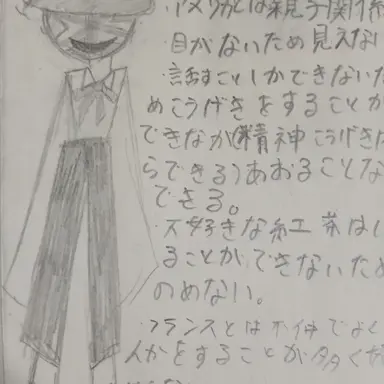 ・アメリカとは親子関係
・目がないため見えない
・話すことしかできないた
めこうげきをすることが
できなか(精神こうげきな
らできる)あおることな
できる。
・大好きな紅茶はし
ることができないため
のめない。
・フランスとは不仲でよく
人かをすることが多く